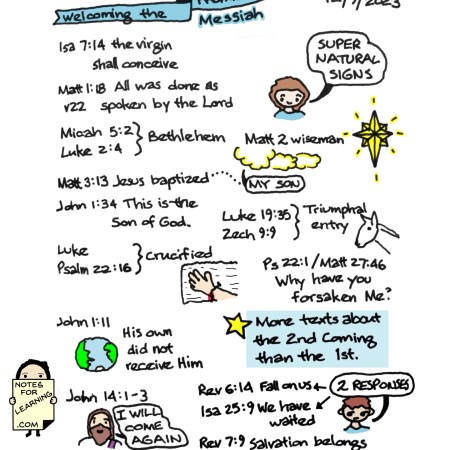 welcoming the
Messiah
12/9/2023
Isa 7:14 the virgin
shall conceive
SUPER
NATURAL
SIGNS
Matt 1:18 All was done as
v22 spoken by the Lord
Micah 5:2
Luke 2:4
Bethlehem
Matt 2 wiseman
Matt 3:13 Jesus baptized
MY SON
John 1:34 This is the
Son of God.
Luke 19:35
Zech 9:9
Triumphal
entry
Luke
Psalm 22:16
Crucified
Ps 22:1/Matt 27:46
Why have you
forsaken Me?
John 1:11
His own
did not
receive Him
More texts about
the 2nd Coming
than the 1st.
NOTES
FOR
LEARNING
.COM
John 14:1-3
I WILL
COME
AGAIN
Rev 6:14 Fall on us
2 RESPONSES
Isa 25:9 We have
waited
Rev 7:9 Salvation belongs